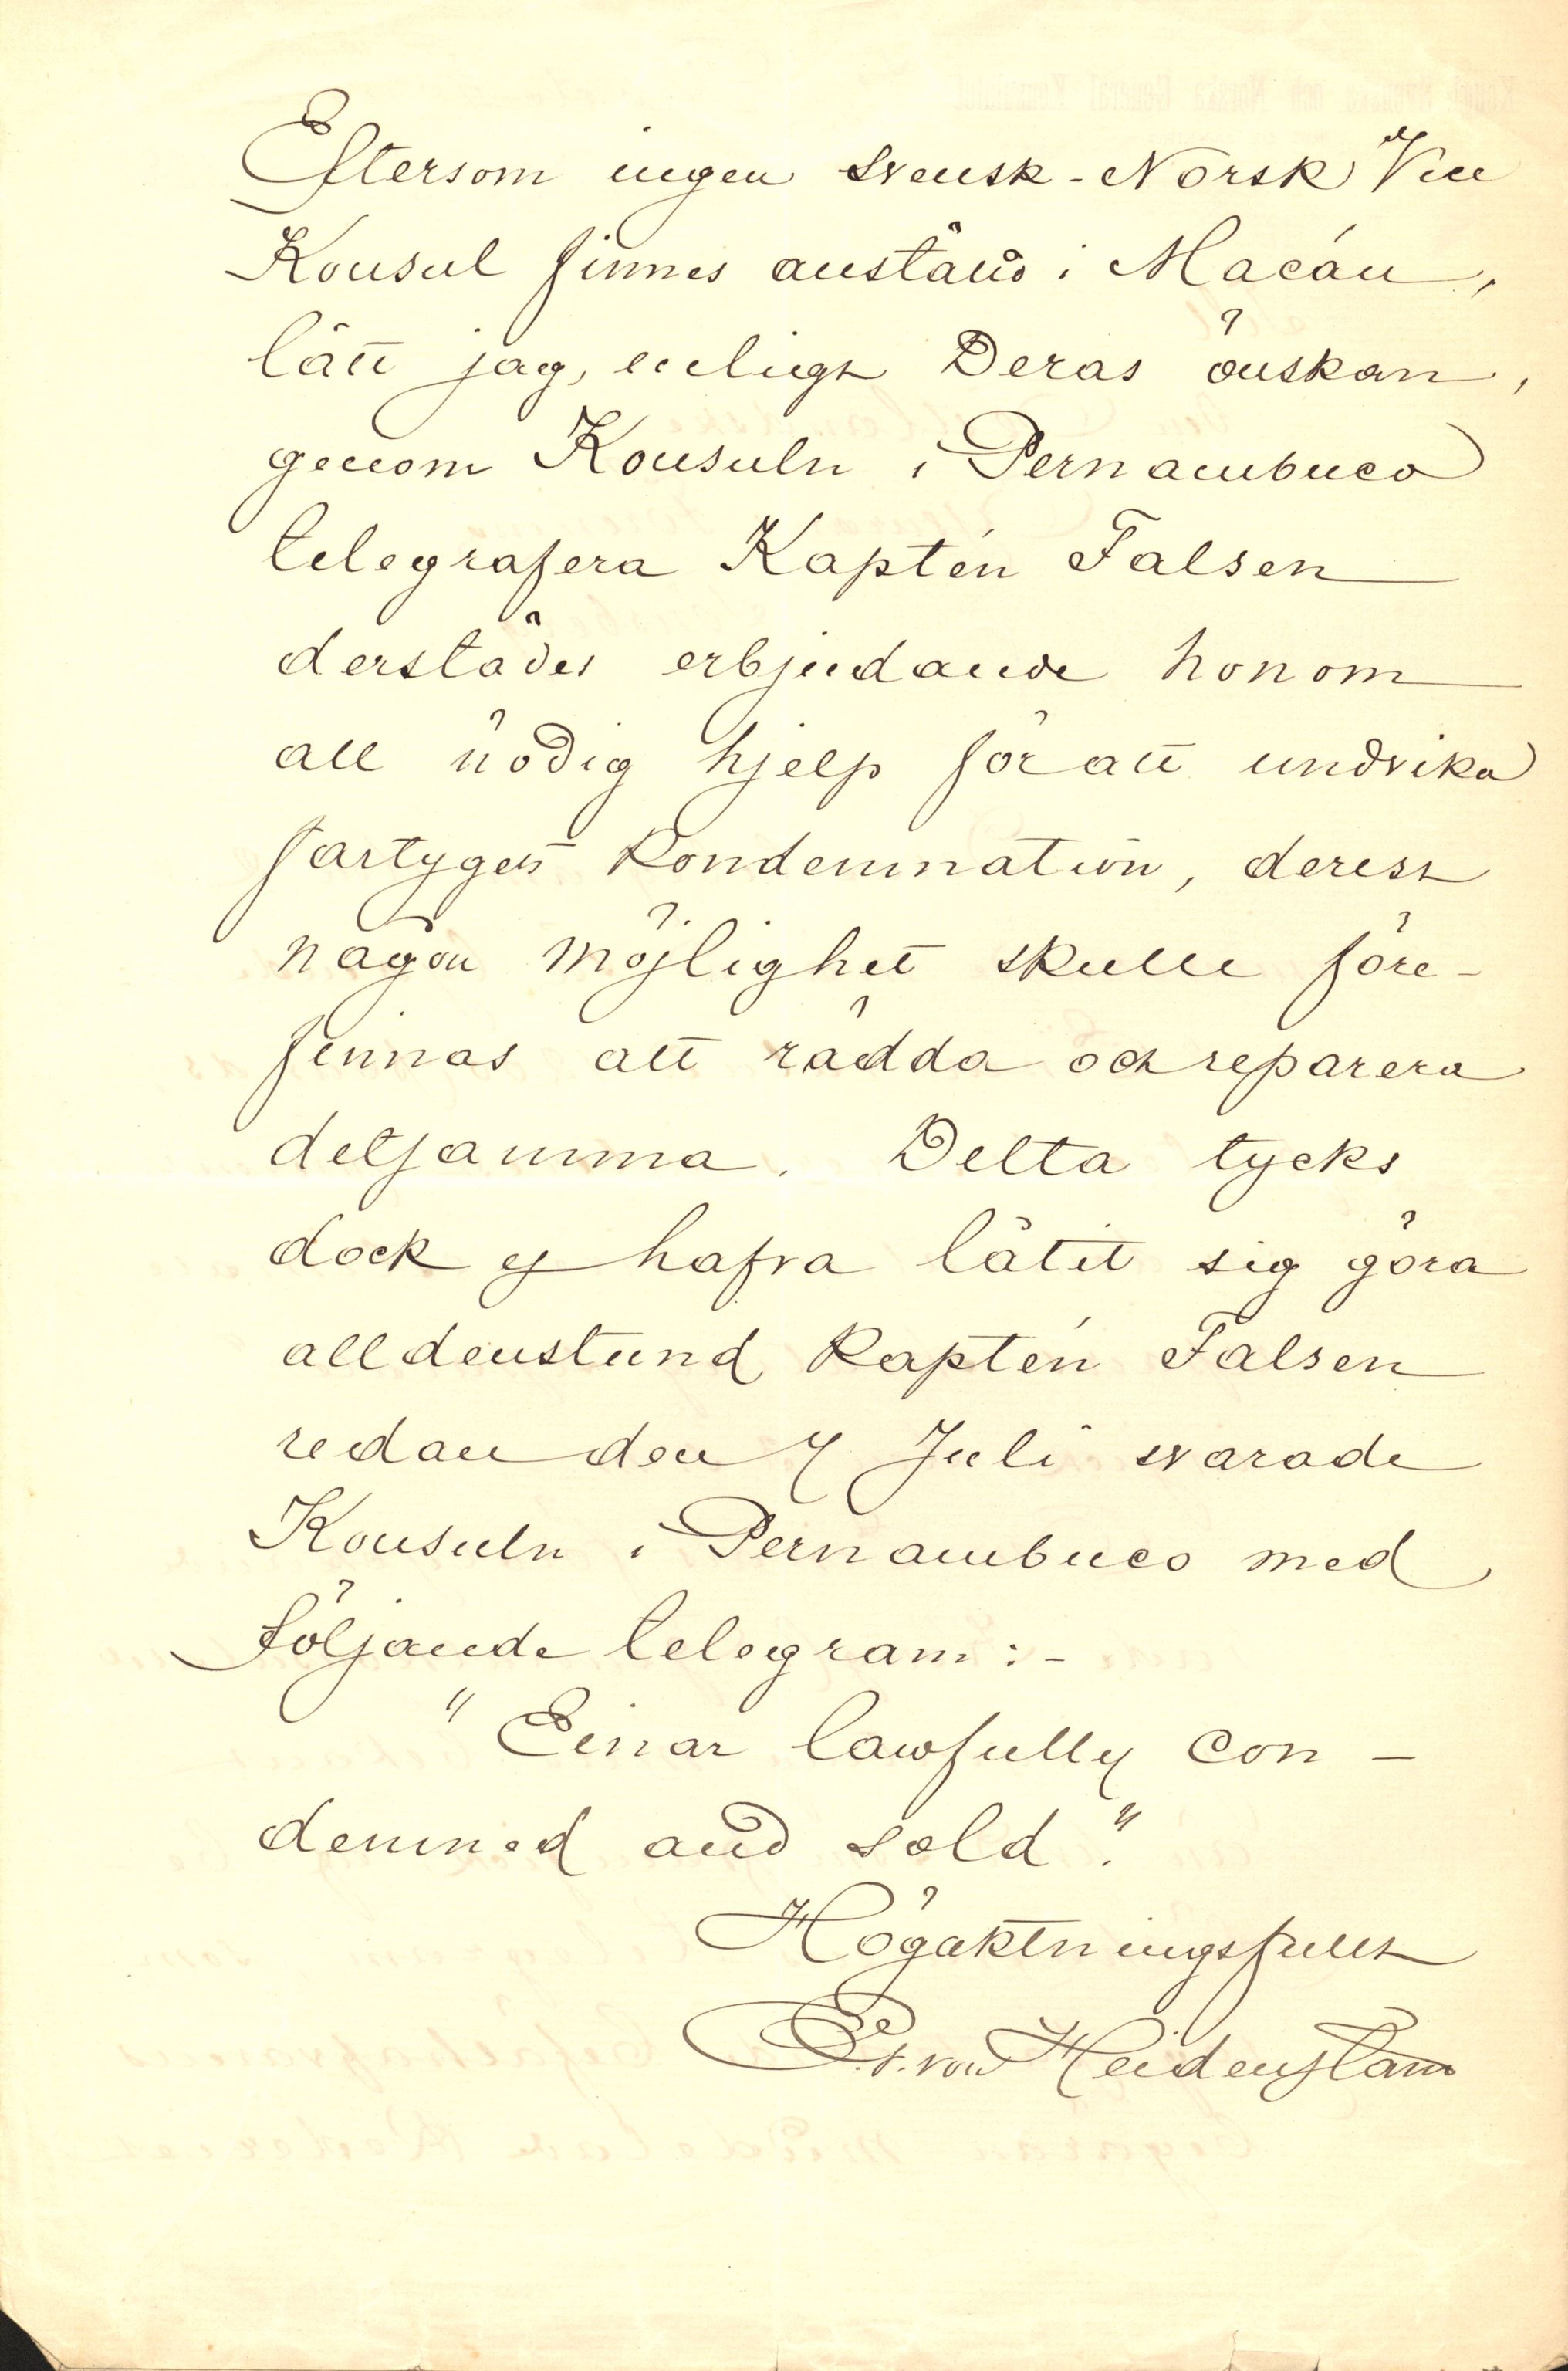 Eftersom ingen Svensk-Norsk Vice
Konsul finnes anstäld i Macáu,
lätt jag, enligt Deras önskan,
genom Konsuln i Pernambuco
telegrafera Kaptén Falsen
derstädes erbjudande honom
all nödig hjelp för att undvika
fartygets Kondemnation, derest
någon möjlighet skulle före-
finnas att rädda och reparera
detsamma. Detta tycks
dock ej hafva låtit sig göra
alldenstund Kaptén Falsen
redan den 7 Juli svarade
Konsuln i Pernambuco med
följande telegram:-
"Einar lawfully con-
demned and sold."
Högaktningsfullt
von Heidenstam